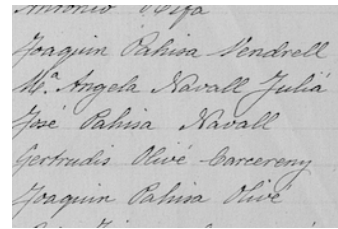 Antonio
Joaquin Pahisa Vendrell
Mª Angela Navall Juliá
José Pahisa Navall
Gertrudis Olivé Carcereny
Joaquin Pahisa Olivé